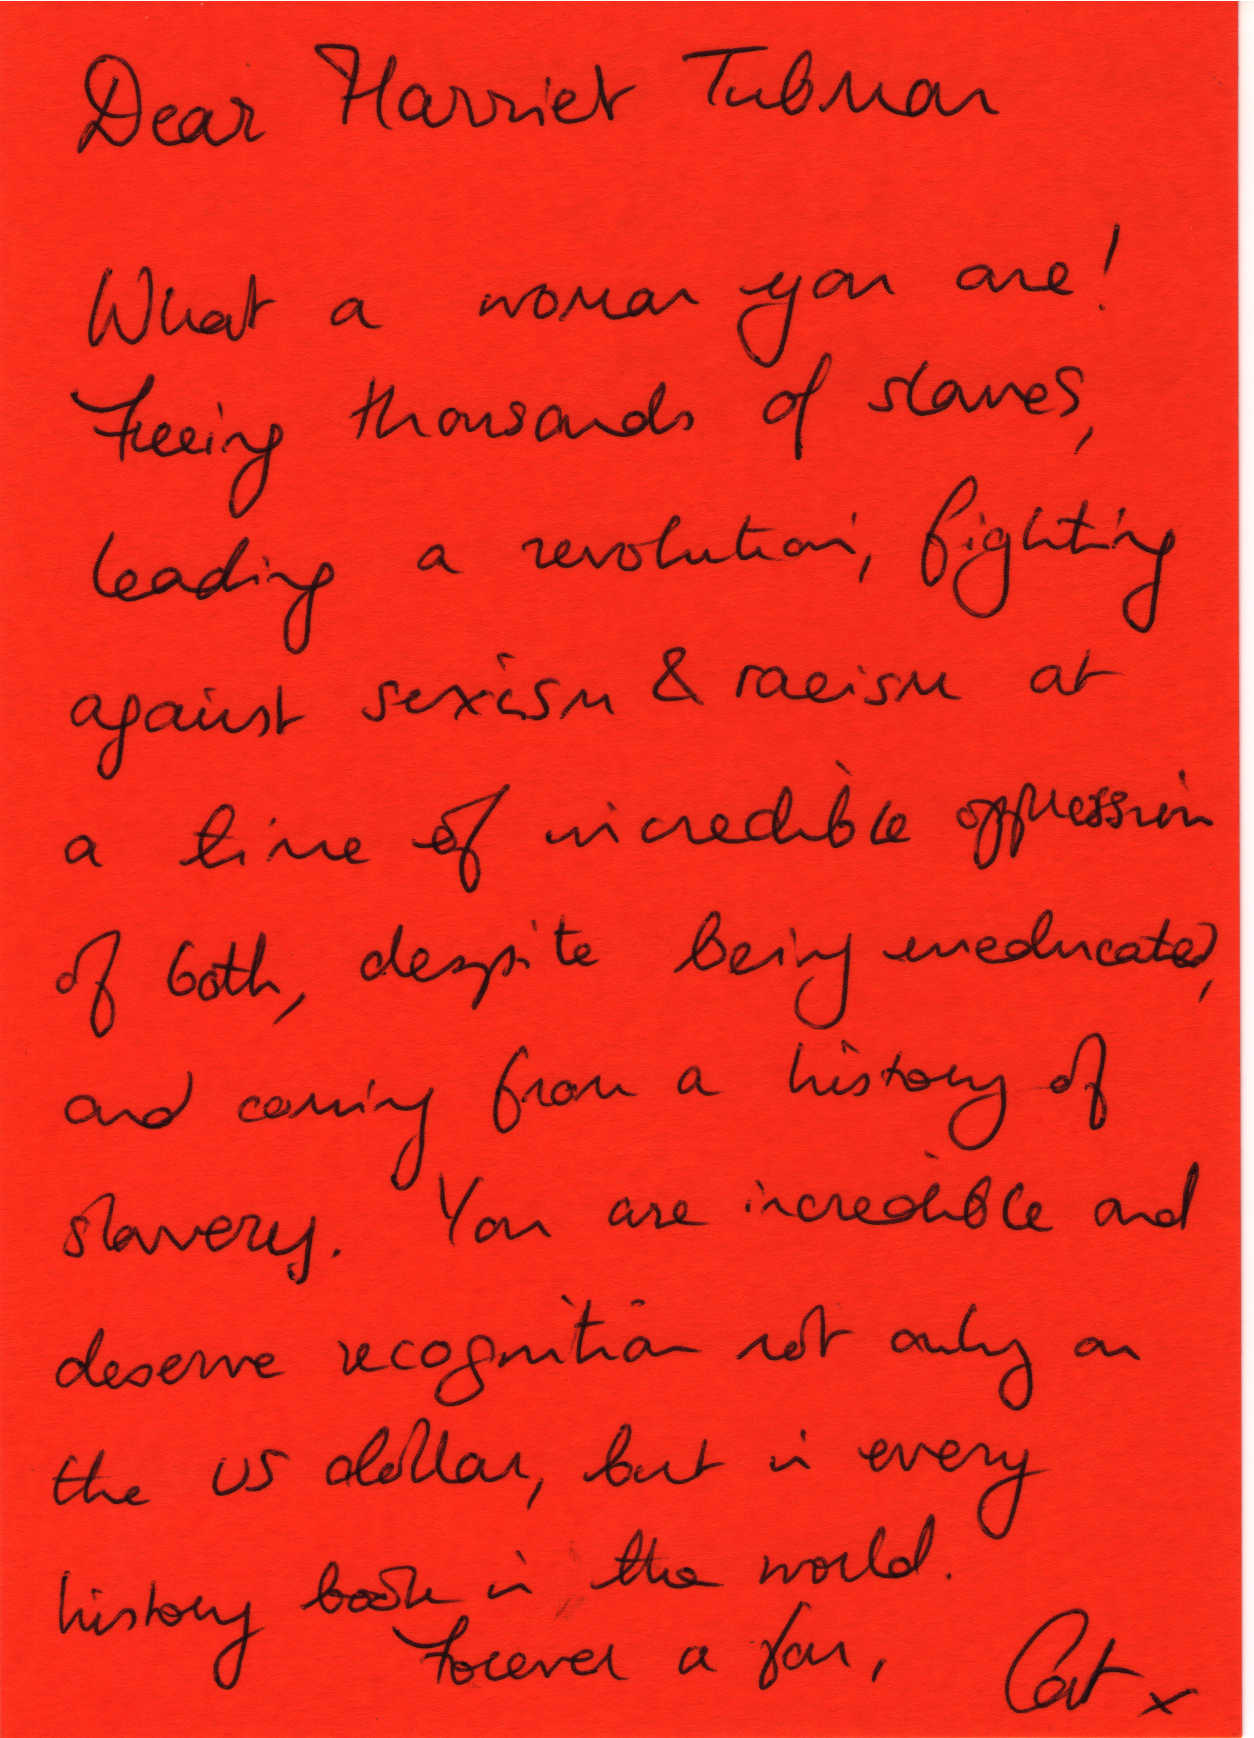 Dear Harriet Tubman
What a woman you are!
Freeing thousands of slaves,
leading a revolution, fighting
against sexism & racism at
a time of incredible oppression
of both, despite being uneducated,
and coming from a history of
slavery. You are incredible and
deserve recognition not only on
the US dollar, but in every
history book in the world.
Forever a fan, Cat x